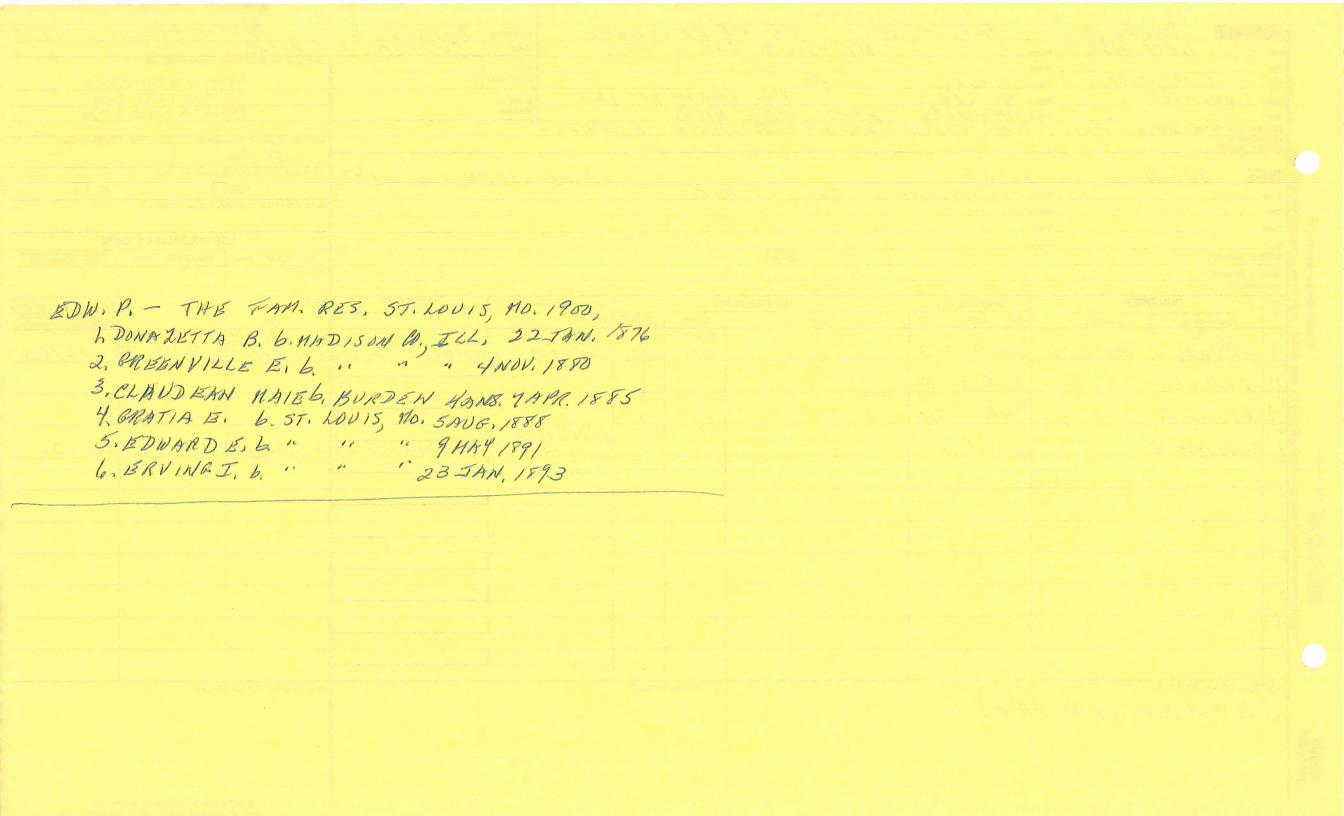 EDW. P. — THE FAM. RES. ST. LOUIS, MO. 1900,
1. DONAZETTA B. b. MADISON CO., ILL, 22 JAN. 1876
2. GREENVILLE E. b. " " " 4 NOV. 1880
3. CLAUDEAN MAIE b. BURDEN KANS. 7 APR. 1885
4. GRATIA E. b. ST. LOUIS, MO. 5 AUG. 1888
5. EDWARD E. b " " " 9 MAY 1891
6. ERVING I. b. " " " 23 JAN. 1893